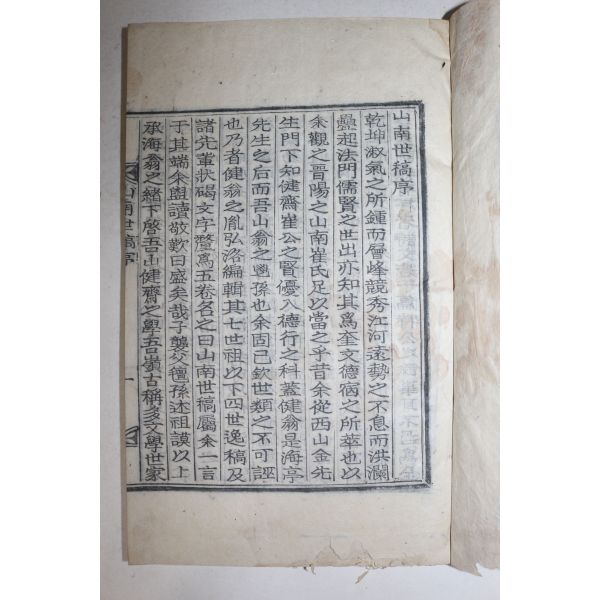 山南世稿序
乾坤淑氣之所鍾而層峰競秀江河遠勢之不息而洪瀾
疊起法門儒賢之世出亦知其爲奎文德宿之所萃也以
余觀之晋陽之山南崔氏足以當之乎昔余從西山金先
生門下知健齋崔公之賢優入德行之科蓋健翁是海亭
先生之后而吾山翁之孫也余固已欽世類之不可誣
也乃者健翁之胤弘洛編輯其七世祖以下四世逸稿及
諸先輩狀碣文字釐爲五卷名之曰山南世稿屬余一言
于其端余盥讀敬歎曰盛矣哉子襲父孫述祖謨以上
承海翁之緖下啓吾山健齋之學吾嶺古稱多文學世家
山南世稿序
一